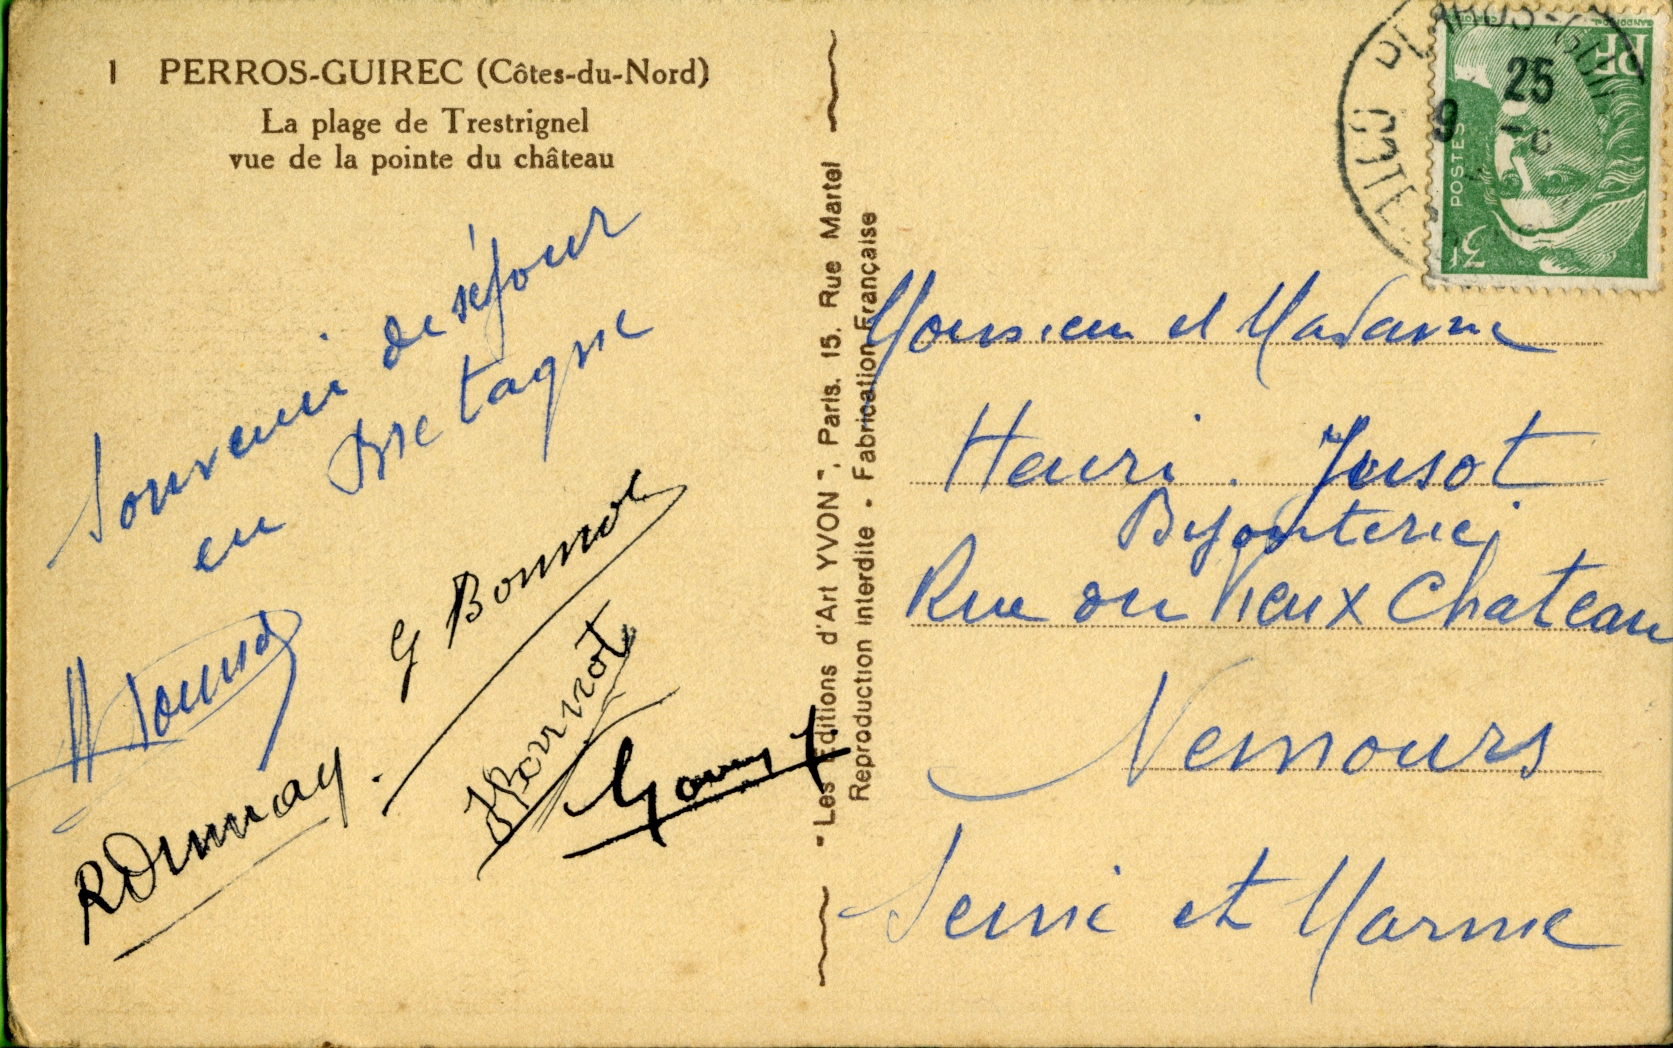 1 PERROS-GUIREC (Côtes-du-Nord)
La plage de Trestrignel
vue de la pointe du château
Souvenir de séjour
en Bretagne
G Bonnot
RDunnay.
"Les Editions d'Art YVON", Paris. 15, Rue Martel
Reproduction interdite - Fabrication Française
25
9
RF
POSTES
3F
Monsieur et Madame
Henri. Jusot
Bijouterie
Rue du Vieux Chateau
Nemours
Seine et Marne